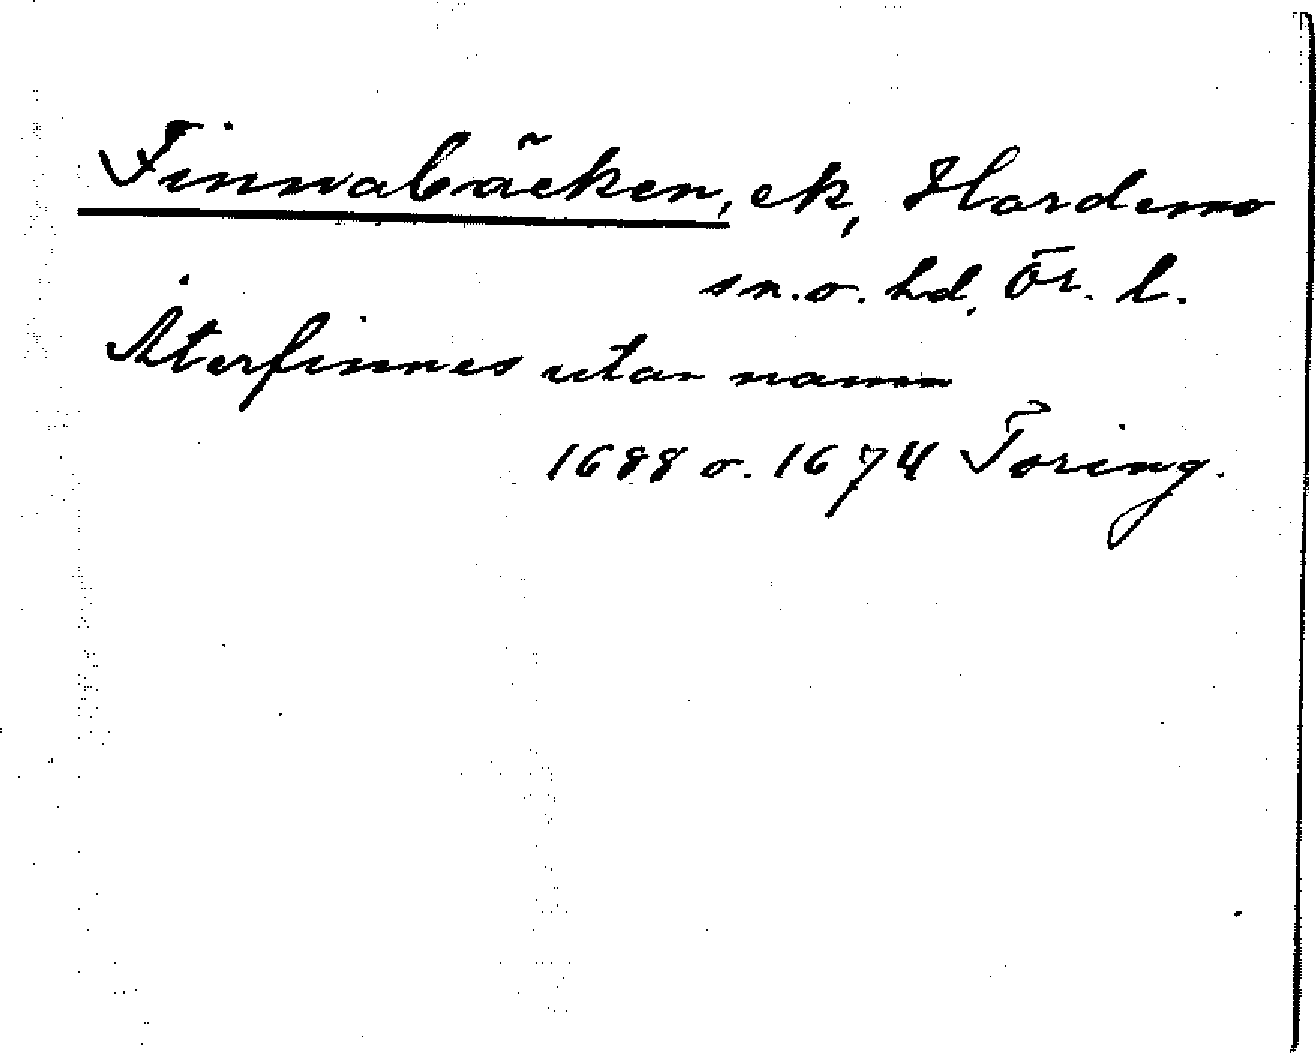 Finnabäcken, ek, Hardemo
sn. o. hd. Ör. l.
Återfinnes utan namn
1688 o. 1674 Toring.